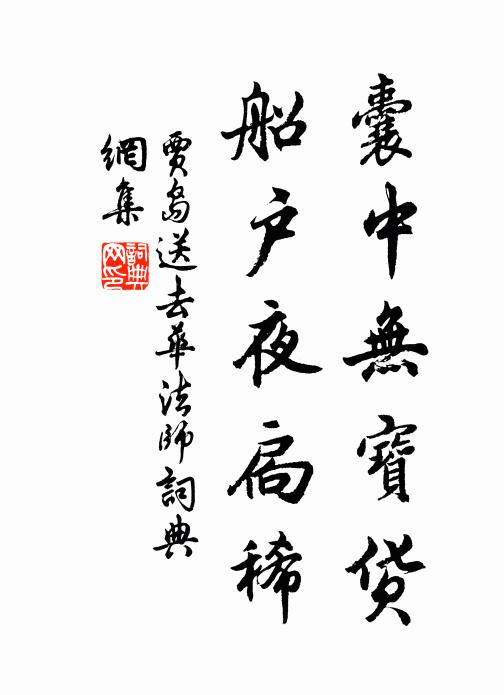 囊中無寶貨
船戶夜扃稀
賈島送去華法師詞典
網集
詞典网印